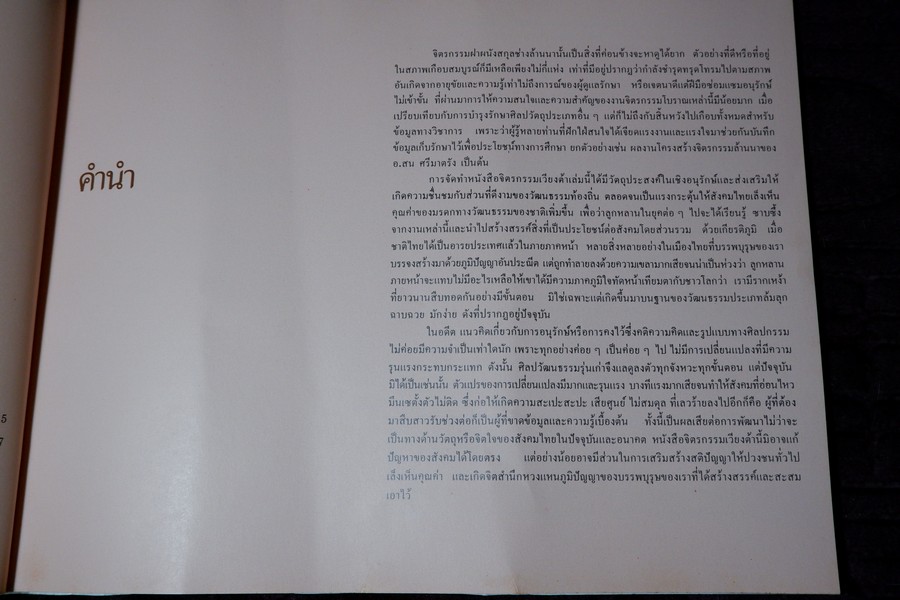 คำนำ
จิตรกรรมฝาผนังสกุลช่างล้านนานั้นเป็นสิ่งที่ค่อนข้างจะหาดูได้ยาก ตัวอย่างที่ดีหรือที่อยู่
ในสภาพเกือบสมบูรณ์ก็มีเหลือเพียงไม่กี่แห่ง เท่าที่มีอยู่ปรากฏว่ากำลังชำรุดทรุดโทรมไปตามสภาพ
อันเกิดจากอายุขัยและความรู้เท่าไม่ถึงการณ์ของผู้ดูแลรักษา หรือเจตนาดีแต่ฝีมือซ่อมแซมอนุรักษ์
ไม่เข้าขั้น ที่ผ่านมาการให้ความสนใจและความสำคัญของงานจิตรกรรมโบราณเหล่านี้มีน้อยมาก เมื่อ
เปรียบเทียบกับการบำรุงรักษาศิลปวัตถุประเภทอื่น ๆ แต่ก็ไม่ถึงกับสิ้นหวังไปเกือบทั้งหมดสำหรับ
ข้อมูลทางวิชาการ เพราะว่าผู้รู้หลายท่านที่ฝักใฝ่สนใจได้เจียดแรงงานและแรงใจมาช่วยกันบันทึก
ข้อมูลเก็บรักษาไว้เพื่อประโยชน์ทางการศึกษา ยกตัวอย่างเช่น ผลงานโครงสร้างจิตรกรรมล้านนาของ
อ.สน ศรีมาตรัง เป็นต้น
การจัดทำหนังสือจิตรกรรมเวียงต้าเล่มนี้ได้มีวัตถุประสงค์ในเชิงอนุรักษ์และส่งเสริมให้
เกิดความชื่นชมกับส่วนที่ดีงามของวัฒนธรรมท้องถิ่น ตลอดจนเป็นแรงกระตุ้นให้สังคมไทยเล็งเห็น
คุณค่าของมรดกทางวัฒนธรรมของชาติเพิ่มขึ้น เพื่อว่าลูกหลานในยุคต่อ ๆ ไปจะได้เรียนรู้ ซาบซึ้ง
จากงานเหล่านี้และนำไปสร้างสรรค์สิ่งที่เป็นประโยชน์ต่อสังคมโดยส่วนรวม ด้วยเกียรติภูมิ เมื่อ
ชาติไทยได้เป็นอารยประเทศแล้วในภายภาคหน้า หลายสิ่งหลายอย่างในเมืองไทยที่บรรพบุรุษของเรา
บรรจงสร้างมาด้วยภูมิปัญญาอันประณีต แต่ถูกทำลายลงด้วยความเขลามากเสียจนน่าเป็นห่วงว่า ลูกหลาน
ภายหน้าจะแทบไม่มีอะไรเหลือให้เขาได้มีความภาคภูมิใจทัดหน้าเทียมตากับชาวโลกว่า เรามีรากเหง้า
ที่ยาวนานสืบทอดกันอย่างมีขั้นตอน มิใช่เฉพาะแต่เกิดขึ้นมาบนฐานของวัฒนธรรมประเภทล้มลุก
ฉาบฉวย มักง่าย ดังที่ปรากฏอยู่ปัจจุบัน
ในอดีต แนวคิดเกี่ยวกับการอนุรักษ์หรือการคงไว้ซึ่งคติความคิดและรูปแบบทางศิลปกรรม
ไม่ค่อยมีความจำเป็นเท่าใดนัก เพราะทุกอย่างค่อย ๆ เป็นค่อย ๆ ไป ไม่มีการเปลี่ยนแปลงที่มีความ
รุนแรงกระทบกระแทก ดังนั้น ศิลปวัฒนธรรมรุ่นเก่าจึงแลดูลงตัวทุกจังหวะทุกขั้นตอน แต่ปัจจุบัน
มิได้เป็นเช่นนั้น ตัวแปรของการเปลี่ยนแปลงมีมากและรุนแรง บางทีแรงมากเสียจนทำให้สังคมที่อ่อนไหว
มึนเซตั้งตัวไม่ติด ซึ่งก่อให้เกิดความสะเปะสะปะ เสียศูนย์ ไม่สมดุล ที่เลวร้ายลงไปอีกก็คือ ผู้ที่ต้อง
มาสืบสาวรับช่วงต่อก็เป็นผู้ที่ขาดข้อมูลและความรู้เบื้องต้น ทั้งนี้เป็นผลเสียต่อการพัฒนาไม่ว่าจะ
เป็นทางด้านวัตถุหรือจิตใจของสังคมไทยในปัจจุบันและอนาคต หนังสือจิตรกรรมเวียงต้านี้มิอาจแก้
ปัญหาของสังคมได้โดยตรง แต่อย่างน้อยอาจมีส่วนในการเสริมสร้างสติปัญญาให้ปวงชนทั่วไป
เล็งเห็นคุณค่า และเกิดจิตสำนึกหวงแหนภูมิปัญญาของบรรพบุรุษของเราที่ได้สร้างสรรค์และสะสม
เอาไว้
5
7